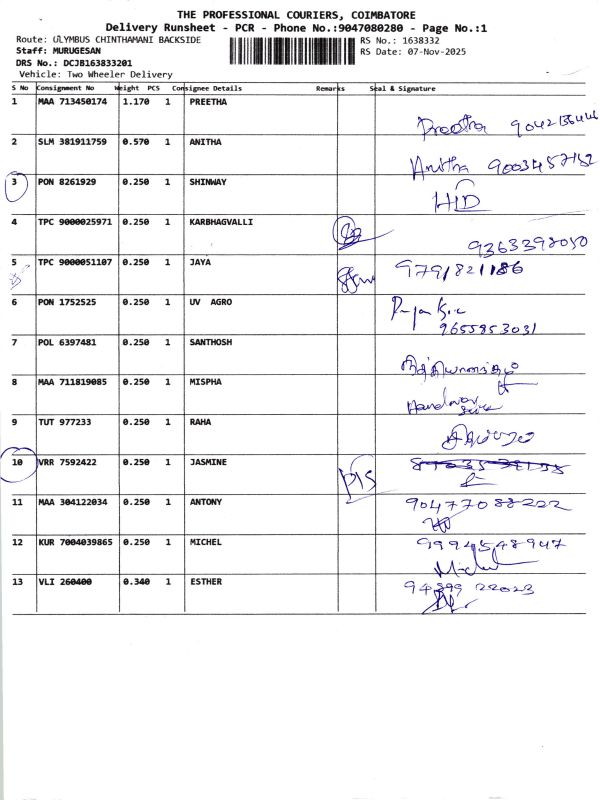 THE PROFESSIONAL COURIERS, COIMBATORE
Delivery Runsheet - PCR - Phone No.:9047080280 - Page No.:1
Route: ULYMBUS CHINTHAMANI BACKSIDE
RS No.: 1638332
Staff: MURUGESAN
RS Date: 07-Nov-2025
DRS No.: DCJB163833201
Vehicle: Two Wheeler Delivery
S No Consignment No Weight PCS Consignee Details Remarks Seal & Signature
1 MAA 713450174 1.170 1 PREETHA
Preetha
2 SLM 381911759 0.570 1 ANITHA
Anitha 9003457152
3 PON 8261929 0.250 1 SHINWAY
H/D
4 TPC 9000025971 0.250 1 KARBHAGVALLI
9363398050
5 TPC 9000051107 0.250 1 JAYA
9791821186
6 PON 1752525 0.250 1 UV AGRO
9655853031
7 POL 6397481 0.250 1 SANTHOSH
8 MAA 711819085 0.250 1 MISPHA
9 TUT 977233 0.250 1 RAHA
10 VRR 7592422 0.250 1 JASMINE
11 MAA 304122034 0.250 1 ANTONY
90477088222
12 KUR 7004039865 0.250 1 MICHEL
9994548947
Michel
13 VLI 260400 0.340 1 ESTHER
94899 22023